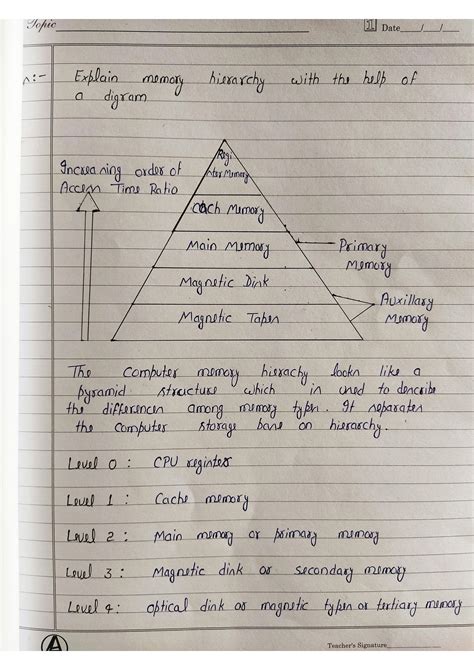 Topic
1 Date __/__/__
n:- Explain memory hierarchy with the help of
a digram
Increasing order of
Access Time Ratio
Regi
ster Memory
Cach Memory
Main Memory
Magnetic Disk
Magnetic Tapes
Primary
Memory
Auxillary
Memory
The Computer memory hierachy looks like a
pyramid structure which is used to describe
the differences among memory types. It separates
the computer storage base on hierarchy.
Level 0 : CPU registers
Level 1 : Cache memory
Level 2 : Main memory or primary memory
Level 3 : Magnetic disk or secondary memory
Level 4 : optical disk or magnetic types or tertiary memory
A
Teacher's Signature